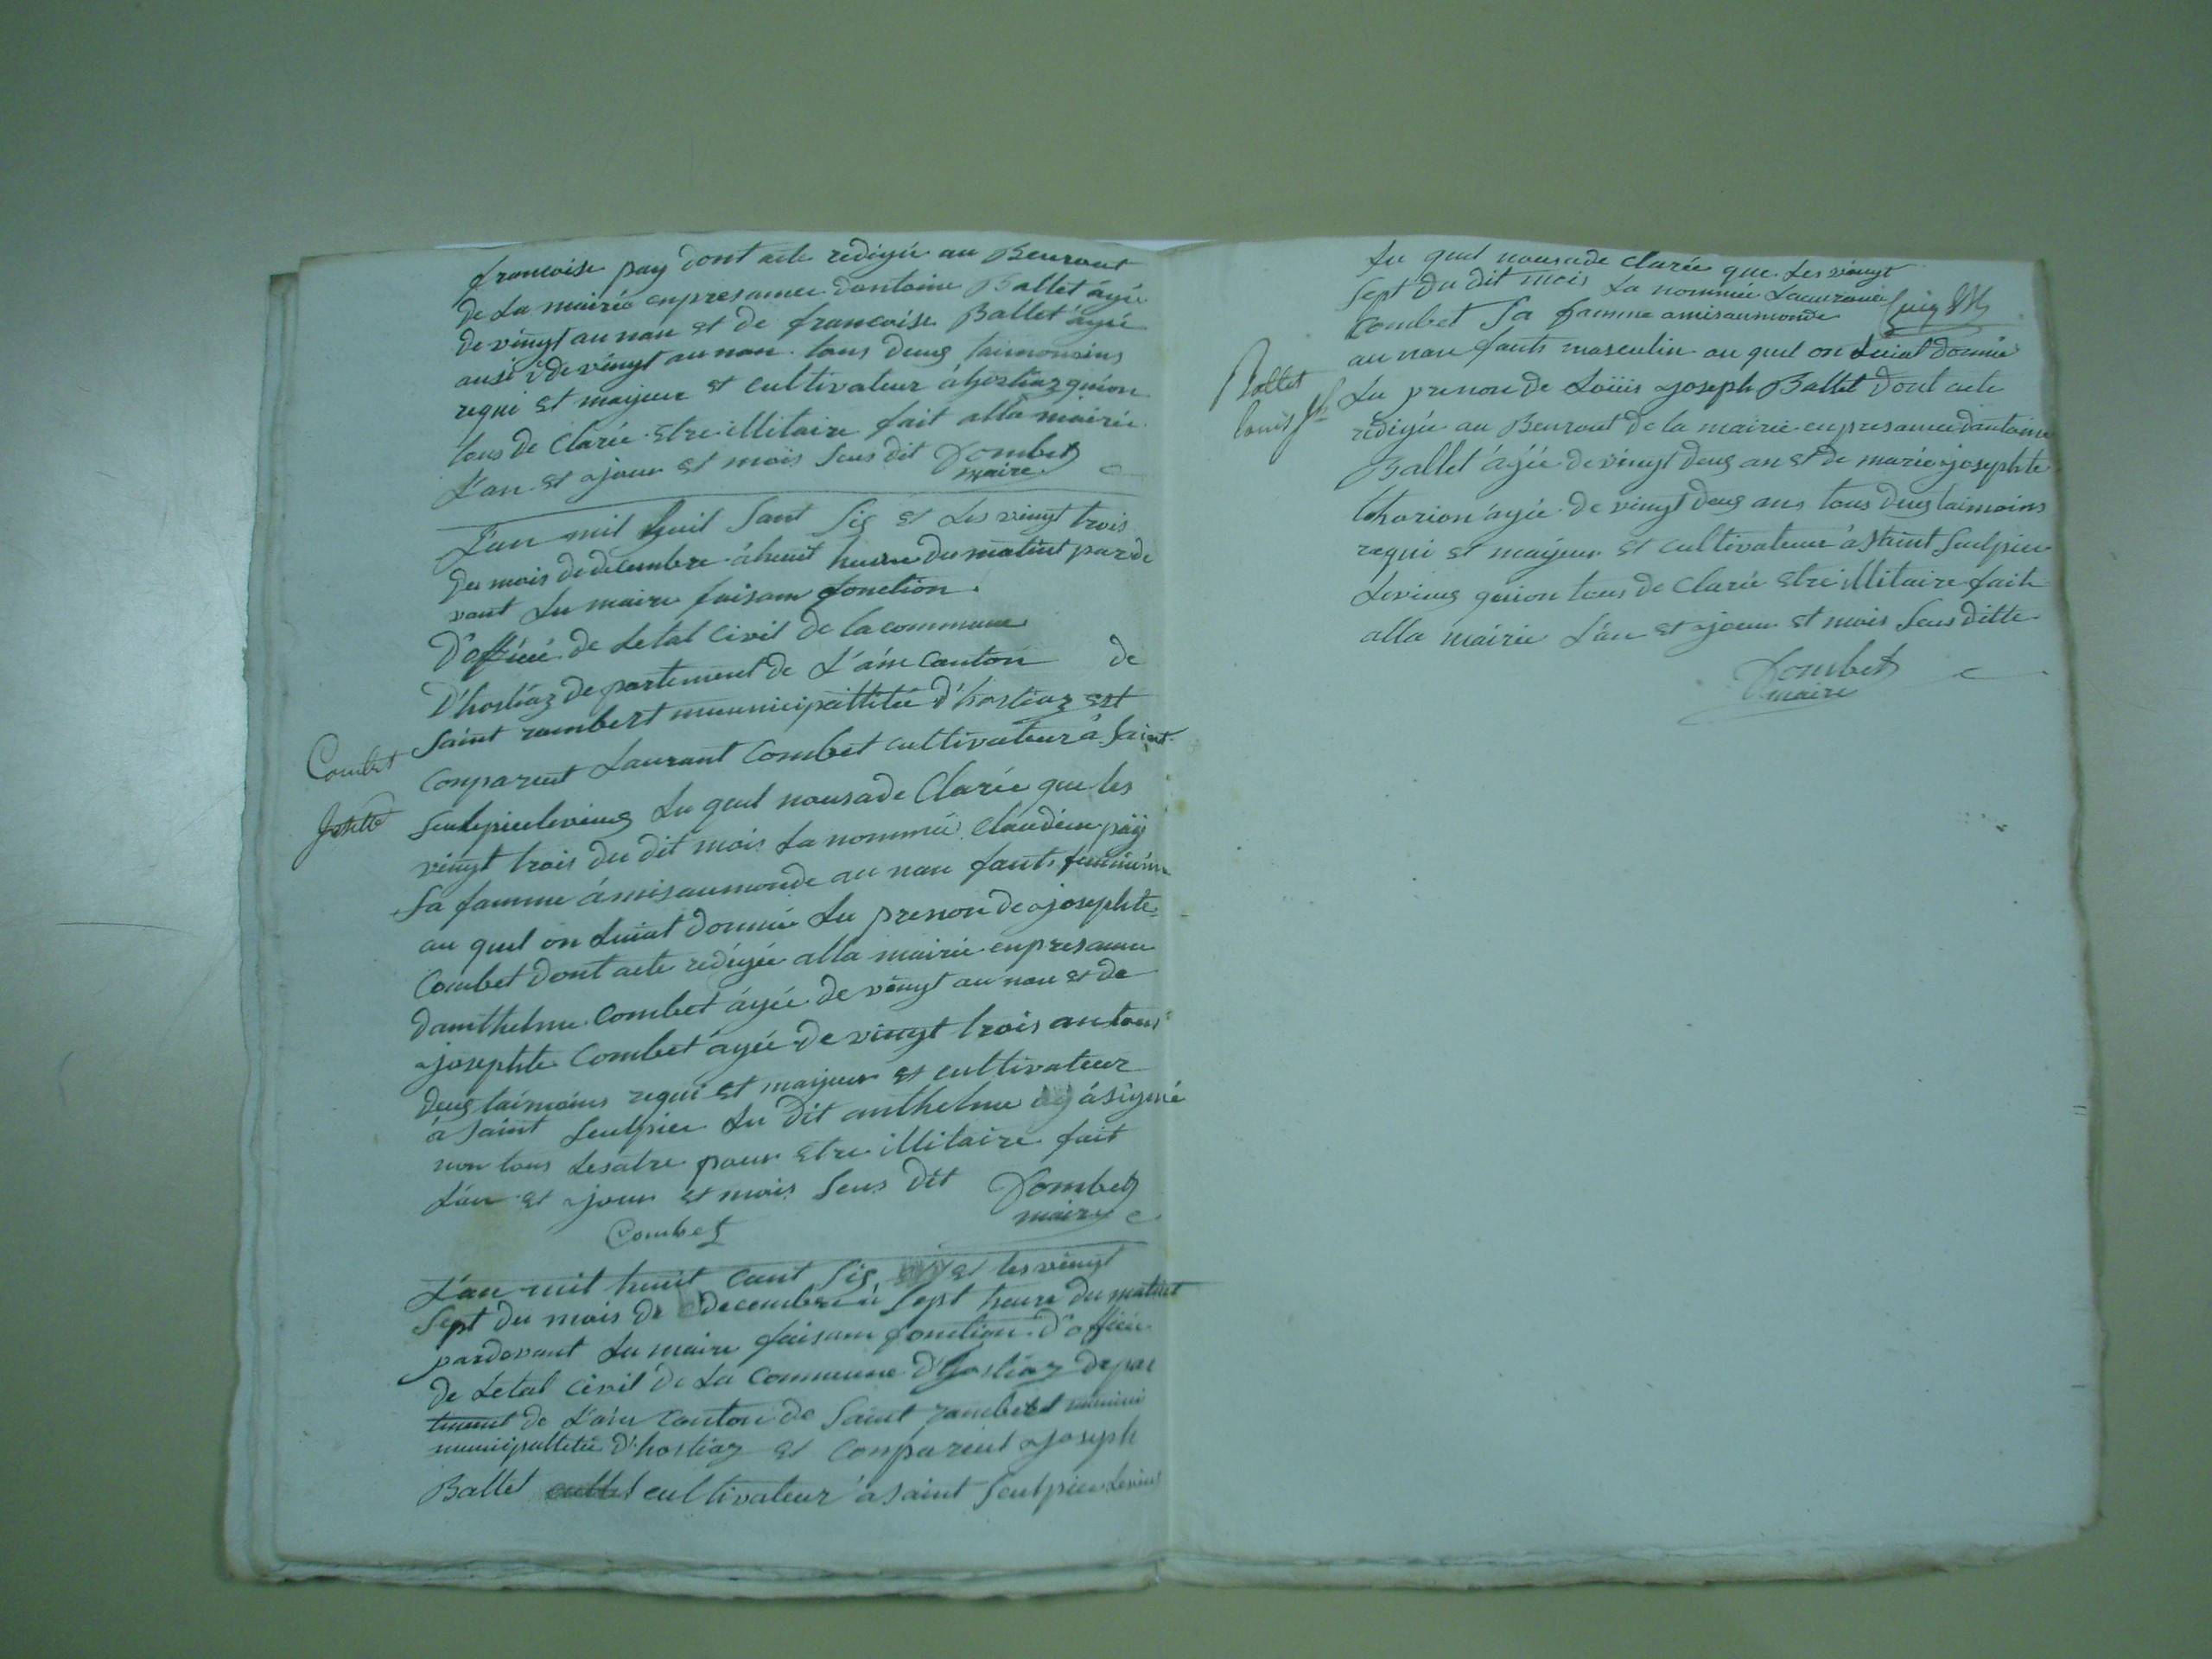 francoise pay dont acte redigée au Beuraut
de La mairie enpresamce dantoine Ballet ágée
de vingt au nan et de francoise Ballet ágée
ausi i de vingt au nan tous deus taimonsins
requi et majeur et cultivateur á hostiaz qui on
tous de Clarée etre illitaire fait alla mairie
L'an et ajour et mois Sus dit Dombet
maire
L'an mil huit Sant Sis et Les vingt trois
du mois de decembre á huit heure du matint par de
vant Lu maire faisam fonction
D'offiéé de Letat Civil de la commune
D'hostiaz departement de L'ain Canton de
Saint rambert municipallitée d'hostiaz est
Comparent Laurant Combet cultivateur á Saint
Combet
Josette
Seulpieulevieus Lu quel nousade Clarée que les
vingt trois du dit mois La nommée Claudine päy
Sa famme á mis aumonde au nan fants feminin
au quel on Luiat donnée Lu prenon de ajosephte
Combet dont acte redigée alla mairie enpresamce
damthelme Combet ágée de vingt au nan et de
ajosephte Combet ágée de vingt trois an tous
deus taimoins requi et majeur et cultivateur
á Saint Seulpier Lu dit anthelme á signé
non tous Lesatre pour etre illitaire fait
L'an et ajour et mois Sus dit Dombet
maire
Combet
L'an mil huit Cant Sis et les vingt
Sept du mois de decembre á Sept heure du matint
pardevant Lu maire faisam fonction d'offiéé
de Letat Civil de La Commune D'hostiaz depar
tement de L'ain Canton de Saint rambert munini
municipallitée D'hostiaz et Comparent ajoseph
Ballet cultivateur á Saint Seulpieu Levieus
Lu quel nousade Clarée que Les vingt
Sept du dit mois La nommée Laurance
Combet Sa famme amis aumonde
au nan fants masculin au quel on Luiat donnée
Ballet
Louis Jh
Lu prenon de Loüis ajoseph Ballet dont acte
redigée au Beuraut de la mairie enpresamce dantoine
Ballet ágée de vingt deus an et de marie ajosephte
thorion ágée de vingt deus ans tous deus taimoins
requi et majeur et cultivateur á Staint Seulpieu
Levieus qui on tous de Clarée etre illitaire fait
alla mairie L'an et ajour et mois Sus ditte
Dombet
maire